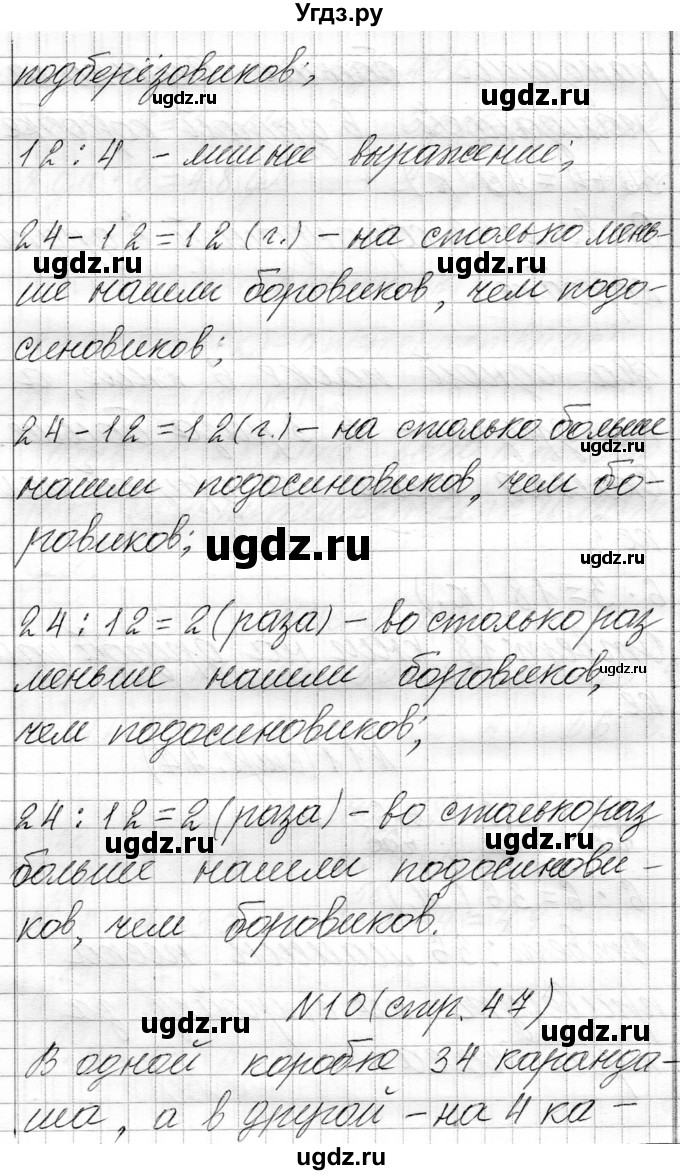 Угдз.ру
подберёзовиков;
ugdz.ru
ugdz.ru
12 : 4 - лишнее выражение;
24 - 12 = 12 (г.) - на столько мень-
ugdz.ru
ugdz.ru
ше нашли боровиков, чем подо-
синовиков;
24 - 12 = 12 (г.) - на столько больше
ugdz.ru
нашли подосиновиков, чем бо-
ровиков;
ugdz.ru
ugdz.ru
24 : 12 = 2 (раза) - во столько раз
меньше нашли боровиков,
ugdz.ru
чем подосиновиков;
24 : 12 = 2 (раза) - во столько раз
ugdz.ru
ugdz.ru
больше нашли подосинови-
ков, чем боровиков.
N10 (стр. 47)
ugdz.ru
ugdz.ru
В одной коробке 34 каранда-
ша, а в другой - на 4 ка-
ugdz.ru